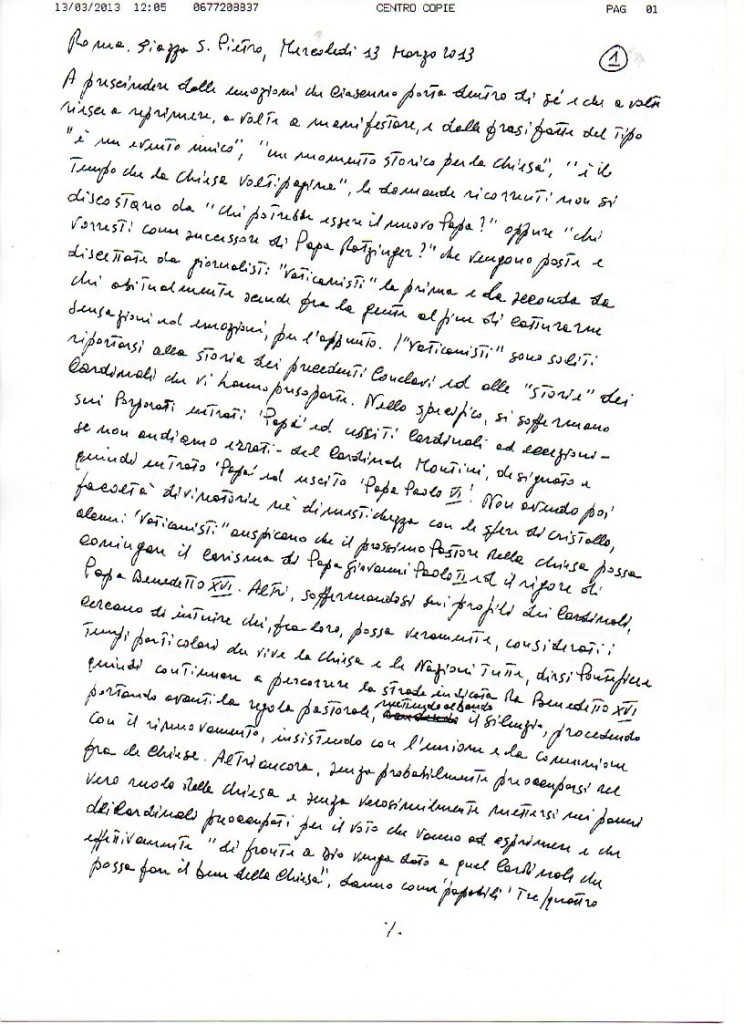 13/03/2013 12:05 0677208837 CENTRO COPIE PAG 01
Roma. Piazza S. Pietro, Mercoledì 13 Marzo 2013
1
A prescindere dalle emozioni che ciascuno porta dentro di sé e che a volte
riesce a reprimere, a volte a manifestare, e dalle frasi fatte del tipo
"è un evento unico", "un momento storico per la Chiesa", "è il
tempo che la Chiesa volti pagina", le domande ricorrenti non si
discostano da "chi potrebbe essere il nuovo Papa?" oppure "chi
vorresti come successore di Papa Ratzinger?" che vengono poste e
discettate da giornalisti "vaticanisti" la prima e la seconda da
chi abitualmente scende fra la gente al fine di catturarne
sensazioni ed emozioni, per l'appunto. I "vaticanisti" sono soliti
riportarsi alla storia dei precedenti Conclavi ed alle "storie" dei
Cardinali che vi hanno preso parte. Nello specifico, si soffermano
sui Porporati entrati 'Papa' ed usciti Cardinali ad eccezione -
se non andiamo errati - del Cardinale Montini, designato e
quindi entrato 'Papa' ed uscito 'Papa Paolo VI'! Non avendo poi
facoltà divinatorie né dimestichezza con le sfere di cristallo,
alcuni "vaticanisti" auspicano che il prossimo Pastore della chiesa possa
coniugare il carisma di Papa Giovanni Paolo II ed il rigore di
Papa Benedetto XVI. Altri, soffermandosi sui profili dei Cardinali,
cercano di intuire chi, fra loro, possa veramente, considerati i
tempi particolari che vive la Chiesa e le Nazioni tutte, dirsi Pontefice e
quindi continuare a percorrere la strada indicata da Benedetto XVI
portando avanti la regola pastorale, mettendo al bando il silenzio, procedendo
con il rinnovamento, insistendo con l'unione e la comunione
fra le Chiese. Altri ancora, senza probabilmente preoccuparsi del
vero ruolo della chiesa e senza verosimilmente mettersi nei panni
dei Cardinali preoccupati per il voto che vanno ad esprimere e che
effettivamente "di fronte a Dio venga dato a quel Cardinale che
possa fare il bene della Chiesa", danno come 'papabili' tre/quattro
./.